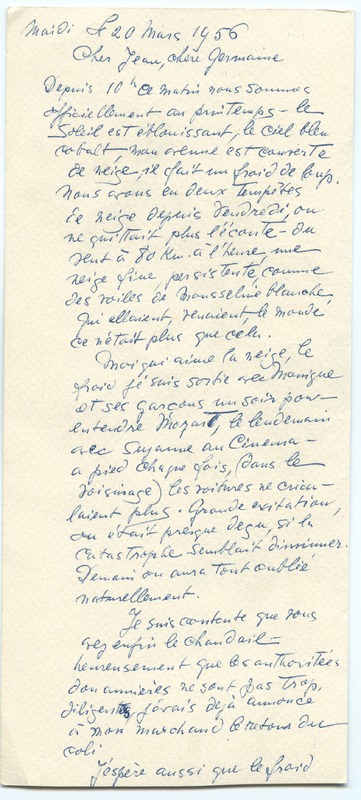 Mardi le 20 Mars 1956
Cher Jean, chère Germaine
Depuis 10h ce matin nous sommes
officiellement au printemps – le
soleil est éblouissant, le ciel bleu
cobalt, mon avenue est couverte
de neige, il fait un froid de loup.
nous avons eu deux tempêtes
de neige depuis vendredi, on
ne quittait plus l'écoute – du
vent à 80 Km. à l'heure, une
neige fine, persistente, comme
des voiles de Mousseline blanche,
qui allaient, venaient, le monde
ce n'était plus que cela.
Moi qui aime la neige, le
froid je suis sortie avec Monique
et ses garçons un soir pour
entendre Mozart, le lendemain
avec Suzanne au Cinema –
a pied chaque fois, (dans le
voisinage) les voitures ne circu-
laient plus. Grande exitation,
on était presque deçu si la
catastrophe semblait diminuer.
Demain on aura tout oublié,
naturellement.
Je suis contente que vous
ayez enfin le chandail –
heureusement que les authorités
douannières ne sont pas trop
diligentes, j'avais déjà annoncé
à mon marchand le retour du
coli.
J'espère aussi que le froid